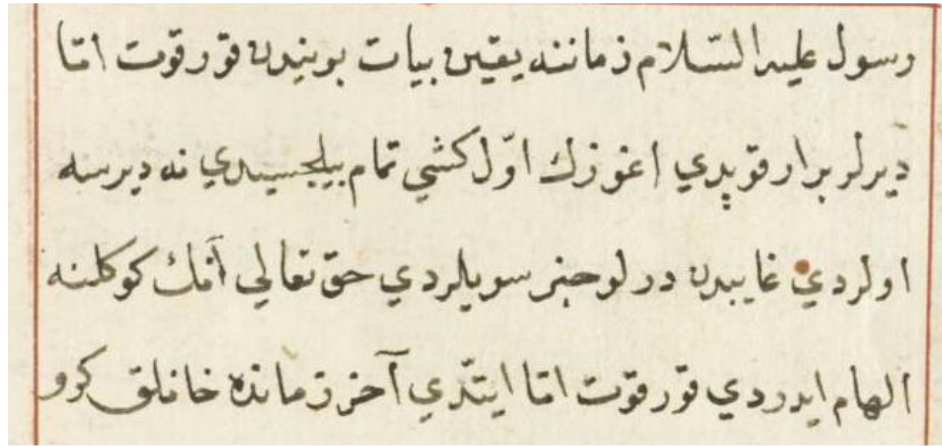 رسول عليه السّلام زماننه يقين بيات بويندن قورقوت اتا
ديرلر بر ار قوپدي اغوزك اوّل كشي تمام بيلجسيدي نه ديرسه
اولردي غايبدن درلو خبر سويلردي حقّ تعالي آنك كوكلنه
الهام ايدردي قورقوت اتا ايتدّي آخر زمانده خانلق كرو